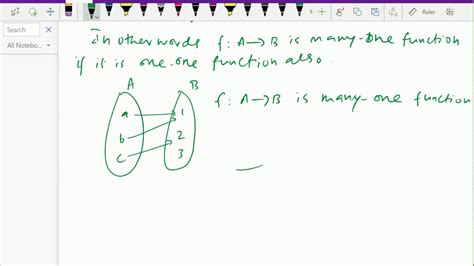 Search
All Notebo...
Ruler
In other words f: A→B is many-one function
if it is one-one function also.
A B
f: A→B is many-one function
a 1
b 2
c 3